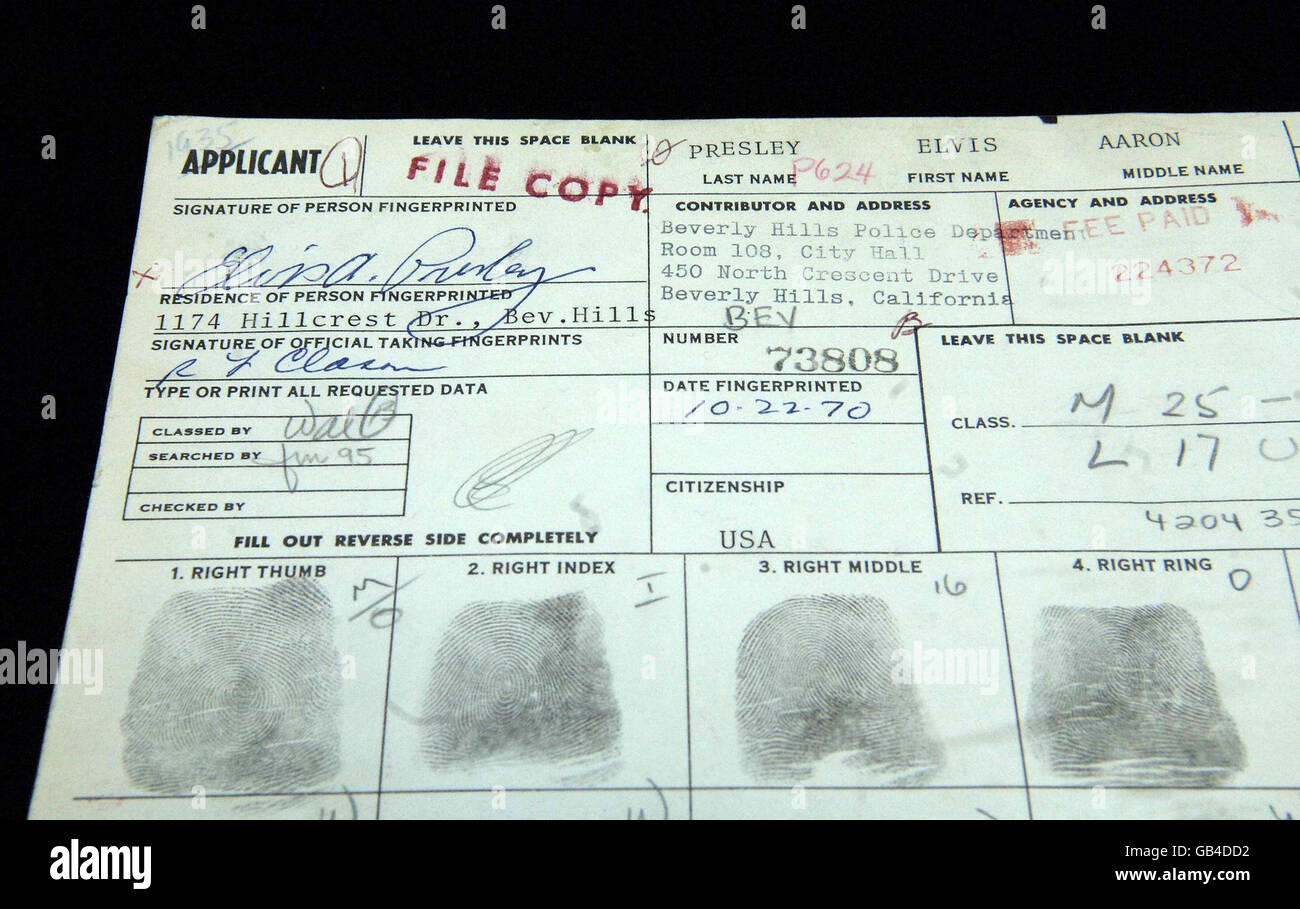 1935
LEAVE THIS SPACE BLANK
PRESLEY ELVIS AARON
APPLICANT 1 FILE COPY.
LAST NAME P624 FIRST NAME MIDDLE NAME
SIGNATURE OF PERSON FINGERPRINTED
CONTRIBUTOR AND ADDRESS
AGENCY AND ADDRESS
Elvis A. Presley
Beverly Hills Police Department
FEE PAID
Room 108, City Hall
224372
450 North Crescent Drive
Beverly Hills, California
RESIDENCE OF PERSON FINGERPRINTED
1174 Hillcrest Dr., Bev.Hills
BEV B
SIGNATURE OF OFFICIAL TAKING FINGERPRINTS
NUMBER 73808
LEAVE THIS SPACE BLANK
R L Clason
TYPE OR PRINT ALL REQUESTED DATA
DATE FINGERPRINTED
10-22-70
CLASS. M 25 -
L 17 U
CLASSED BY
SEARCHED BY fm 95
CHECKED BY
CITIZENSHIP
USA
REF.
4204 35
FILL OUT REVERSE SIDE COMPLETELY
1. RIGHT THUMB 2. RIGHT INDEX I 3. RIGHT MIDDLE 16 4. RIGHT RING O
M
O
a alamy
alamy
Image ID: GB4DD2
www.alamy.com